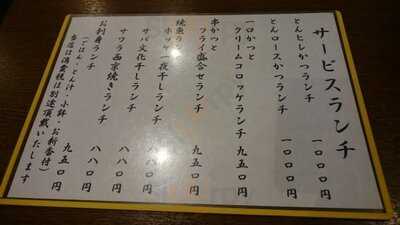 サービスランチ
とんヒレかつランチ 一〇〇〇円
とんロースかつランチ 一〇〇〇円
一口かつと
クリームコロッケランチ 九五〇円
串かつと
フライ盛合せランチ 九五〇円
焼魚ランチ
ホッケ一夜干しランチ
サバ文化干しランチ 八八〇円
サワラ西京焼きランチ 八八〇円
お刺身ランチ 九五〇円
(ごはん・とん汁・小鉢・お新香付)
当店は消費税は別途頂戴いたします